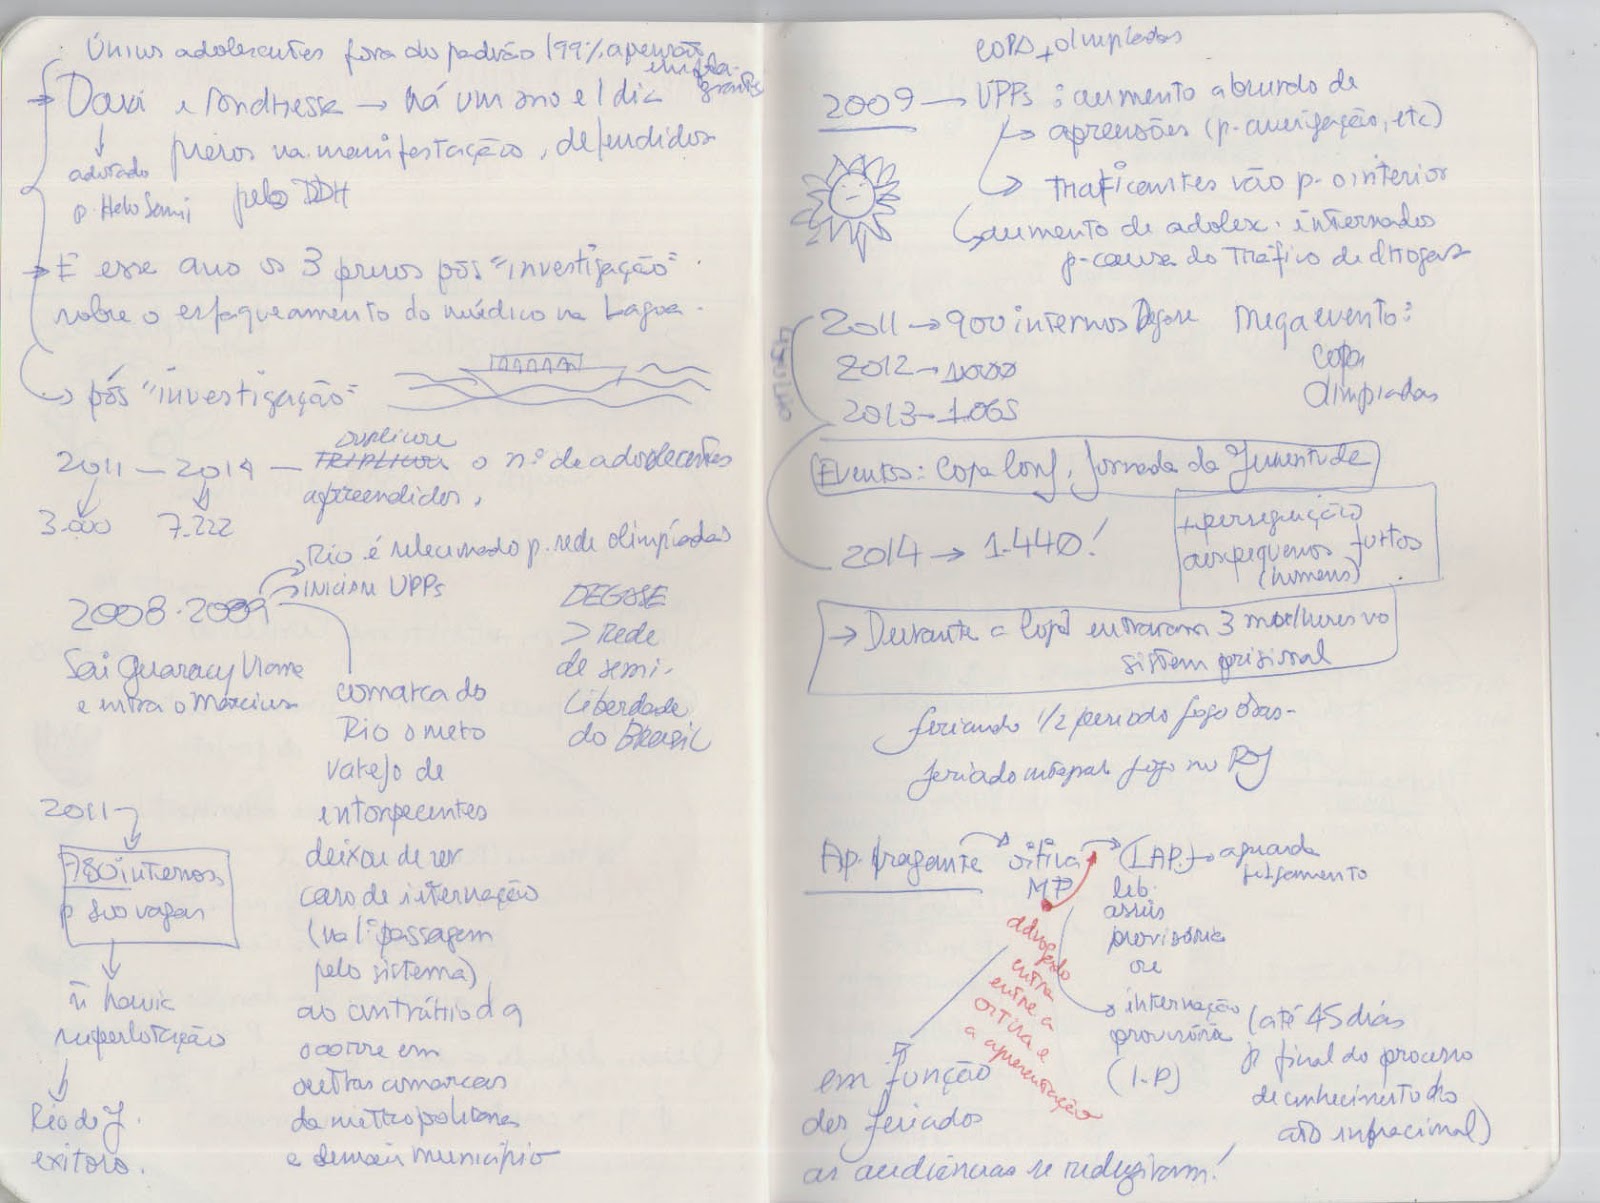 Únicos adolescentes fora do padrão (99% apensão
em fla-
grantes
Davi e Andressa → há um ano e 1 dia
presos na manifestação, defendidos
pelo DDH
adotado
p.
→ E esse ano os 3 presos pós "investigação"
sobre o esfaqueamento do médico na Lagoa.
→ pós "investigação"
2011 — 2014 — TRIPLICOU duplicou o nº de adolescentes
apreendidos.
3.000 7.222
Rio é selecionado p. sede olimpíadas
iniciam UPPs
2008-2009
Sai Guaracy Viana
e entra o Marcius
comarca do
Rio o mero
varejo de
entorpecentes
deixou de ser
caso de internação
(na 1ª passagem
pelo sistema)
ao contrário d q
ocorre em
outras comarcas
da metropolitana
e demais município
DEGASE
> Rede
de semi-
liberdade
do Brasil
2011
780 internos
p 800 vagas
ñ havia
superlotação
Rio de J.
exitoso.
COPA + olimpíadas
2009 → UPPs: aumento absurdo de
apreensões (p. averigação, etc)
→ traficantes vão p. o interior
aumento de adolex. internados
p. causa do tráfico de drogas
2011 → 900 internos Degase
2012 → 1000
2013 → 1.065
Mega evento:
Copa
Olimpiadas
Eventos: Copa Conf, Jornada da Juventude
2014 → 1.440!
+ perseguição
aos pequenos furtos
(homens)
→ Durante a Copa entraram 3 mulheres no
sistem prisional
feriando 1/2 período jogo Bras-
feriado integral jogo no RJ
Ap. fragante → oitiva MP → (I AP.) → aguarda
julgamento
lib.
assis
provisória
ou
internação
provisória
(I.P)
(até 45 dias
p final do processo
de conhecimento do
ato infracional)
advogado
entra
entre a
oitiva e
a apresentação
em função
dos feriados
as audiências se reduziram!